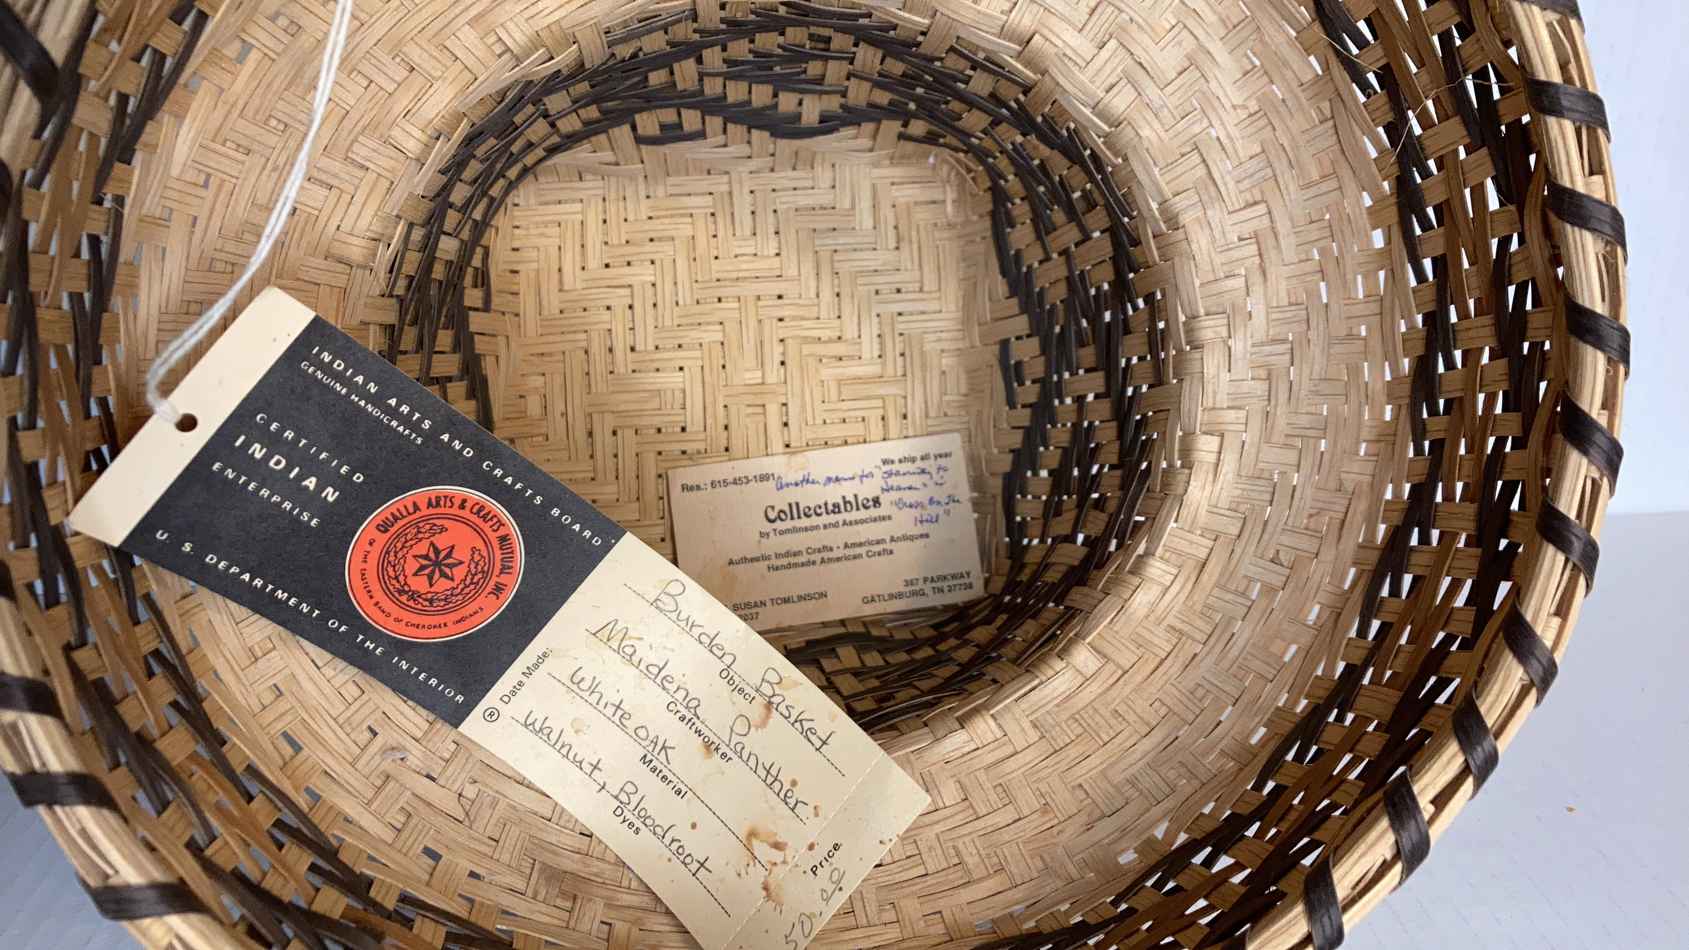 INDIAN ARTS AND CRAFTS BOARD
GENUINE HANDICRAFTS
CERTIFIED
INDIAN
ENTERPRISE
U. S. DEPARTMENT OF THE INTERIOR
QUALLA ARTS & CRAFTS MUTUAL INC.
OF THE EASTERN BAND OF CHEROKEE INDIANS
Burden Basket
Object
Maidena Panther
Craftworker
White OAK
Material
Walnut, Bloodroot
Dyes
® Date Made:
Price
50.00
Res.: 615-453-1891
We ship all year
Another name for "Stairway to
Heaven" is
"Cross On The
Hill"
Collectables
by Tomlinson and Associates
Authentic Indian Crafts - American Antiques
Handmade American Crafts
SUSAN TOMLINSON
7037
367 PARKWAY
GATLINBURG, TN 37738